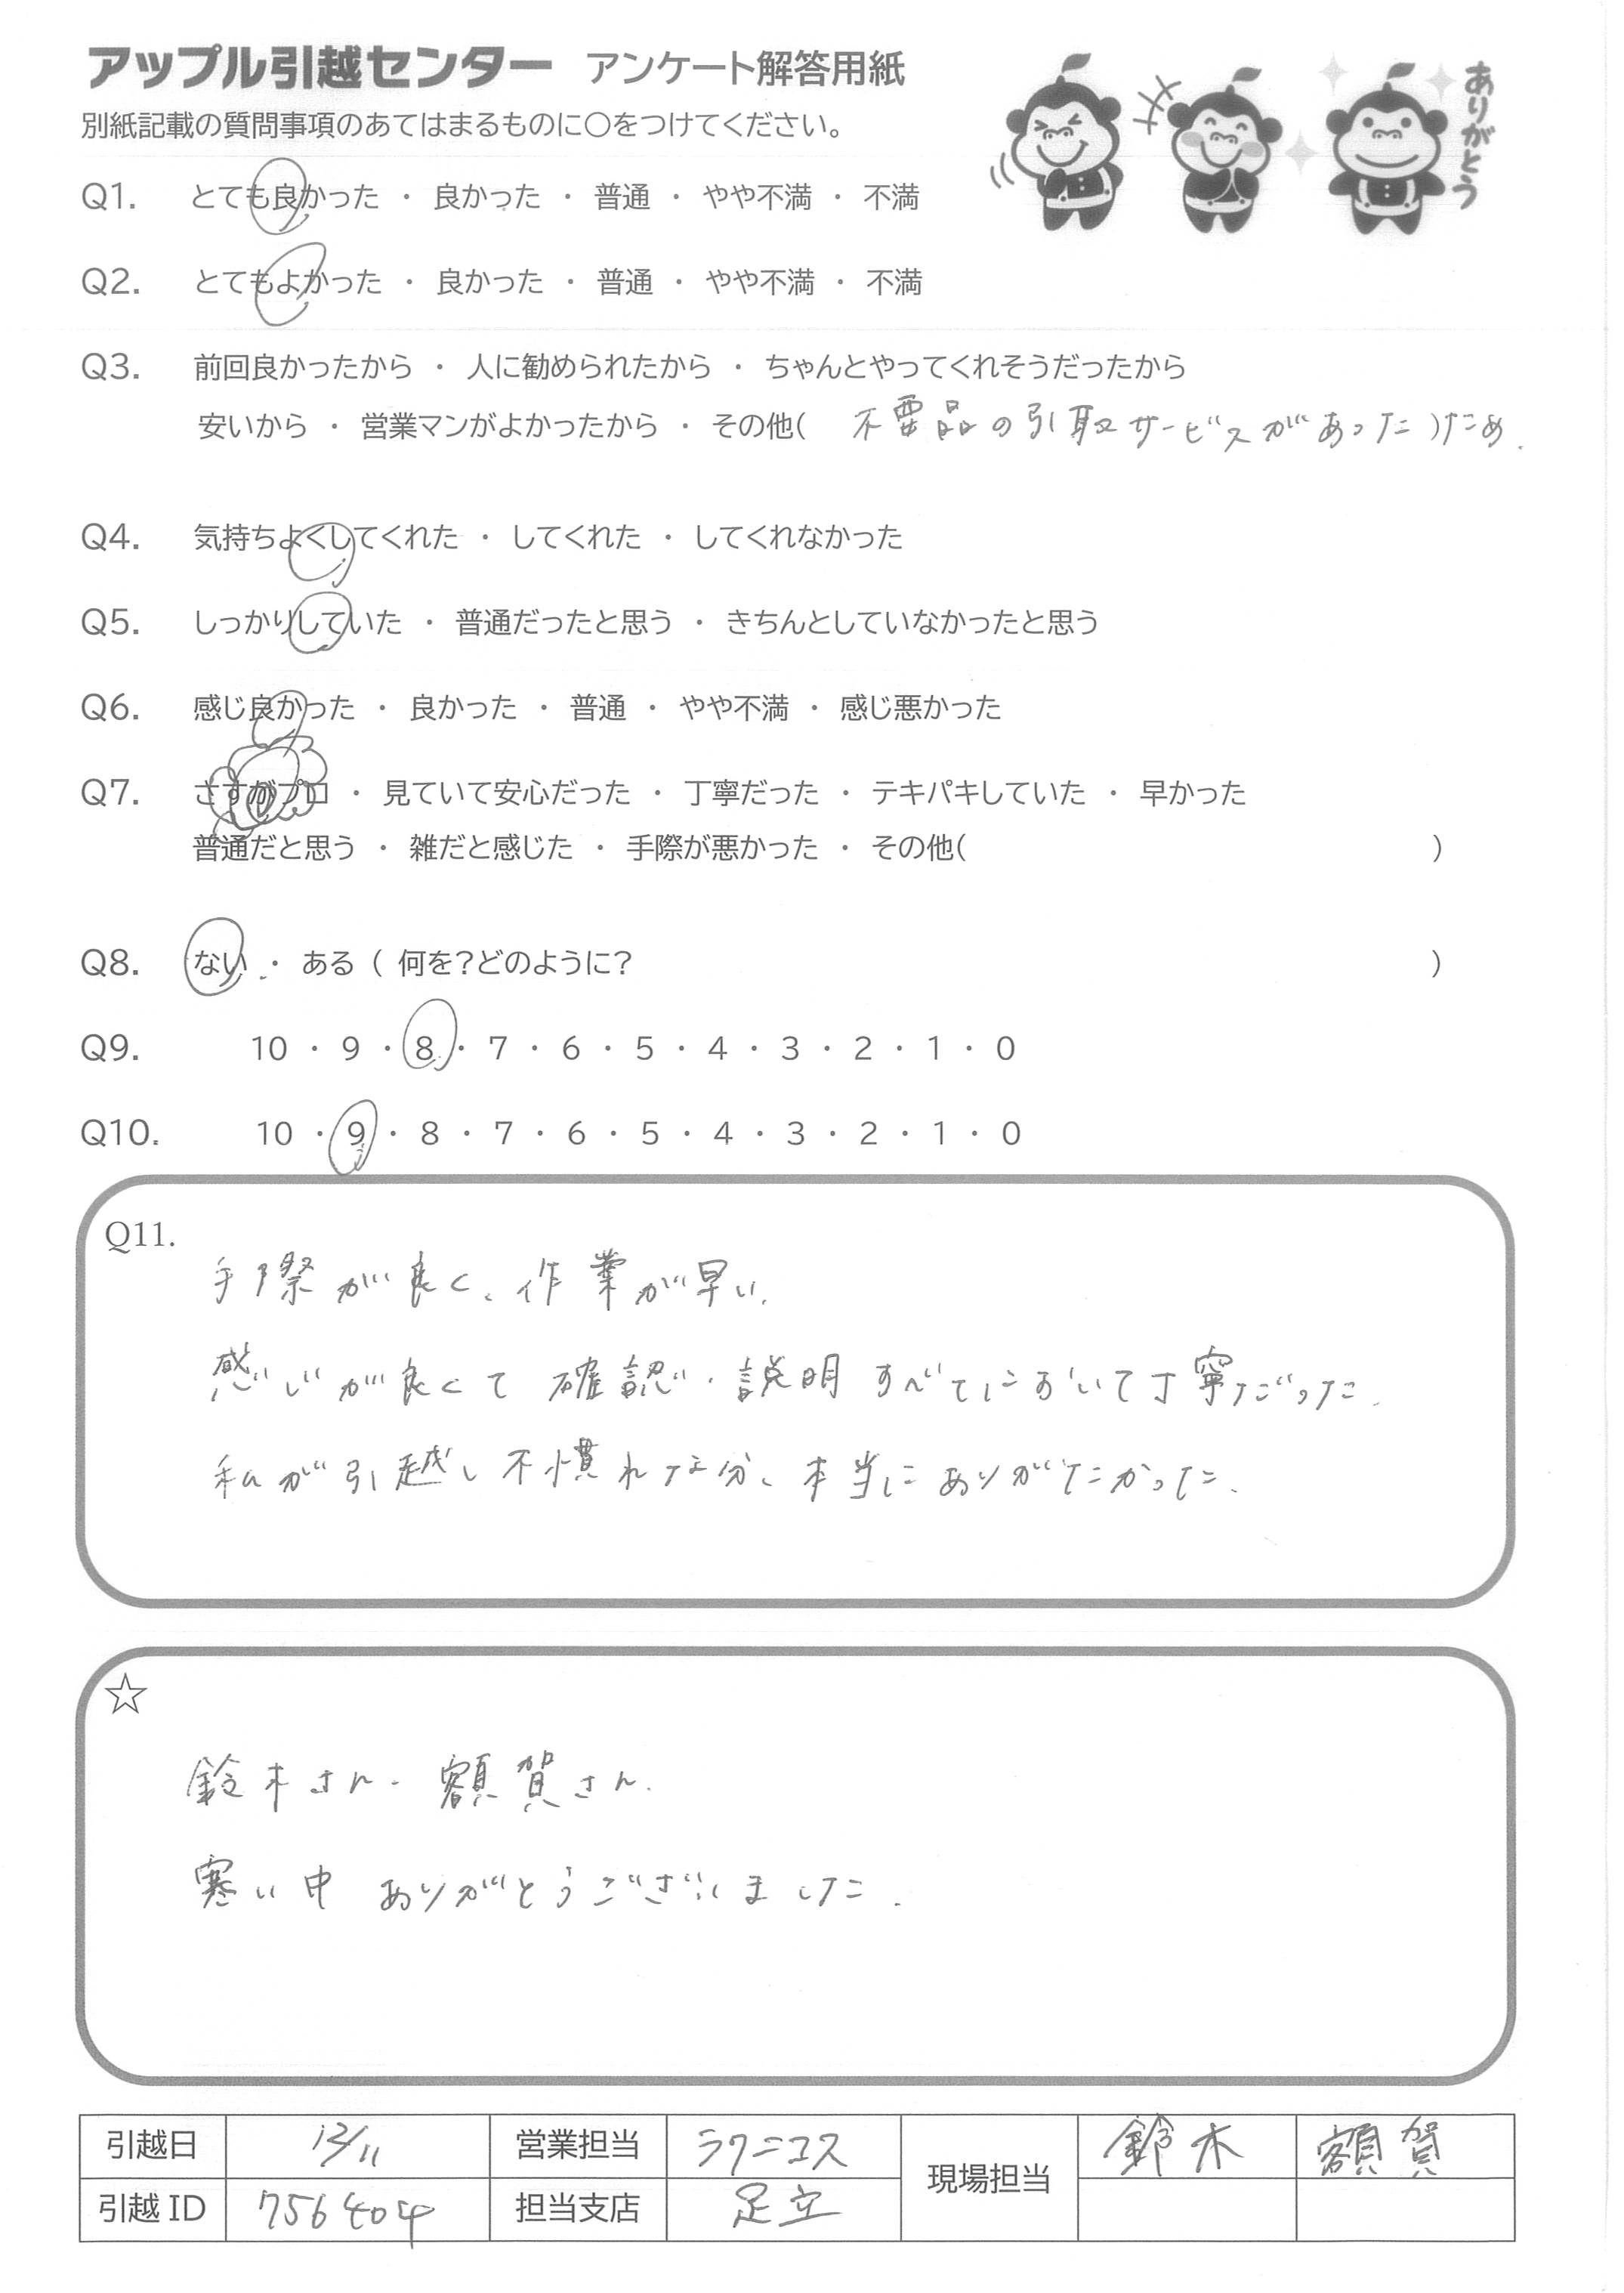 アップル引越センター アンケート解答用紙
ありがとう
別紙記載の質問事項のあてはまるものに○をつけてください。
Q1. とても良かった ・ 良かった ・ 普通 ・ やや不満 ・ 不満
Q2. とてもよかった ・ 良かった ・ 普通 ・ やや不満 ・ 不満
Q3. 前回良かったから ・ 人に勧められたから ・ ちゃんとやってくれそうだったから
安いから ・ 営業マンがよかったから ・ その他( 不要品の引取サービスがあった )ため.
Q4. 気持ちよくしてくれた ・ してくれた ・ してくれなかった
Q5. しっかりしていた ・ 普通だったと思う ・ きちんとしていなかったと思う
Q6. 感じ良かった ・ 良かった ・ 普通 ・ やや不満 ・ 感じ悪かった
Q7. さすがプロ ・ 見ていて安心だった ・ 丁寧だった ・ テキパキしていた ・ 早かった
普通だと思う ・ 雑だと感じた ・ 手際が悪かった ・ その他( )
Q8. ない ・ ある ( 何を?どのように? )
Q9. 10 ・ 9 ・ 8 ・ 7 ・ 6 ・ 5 ・ 4 ・ 3 ・ 2 ・ 1 ・ 0
Q10. 10 ・ 9 ・ 8 ・ 7 ・ 6 ・ 5 ・ 4 ・ 3 ・ 2 ・ 1 ・ 0
Q11.
手際が良く、作業が早い.
感じが良くて 確認・説明 すべてにおいて丁寧だった.
私が引越し不慣れな分、本当にありがたかった.
☆
鈴木さん・額賀さん.
寒い中 ありがとうございました.
引越日 12/11 営業担当 ラクニコス 現場担当 鈴木 額賀
引越ID 756404 担当支店 足立